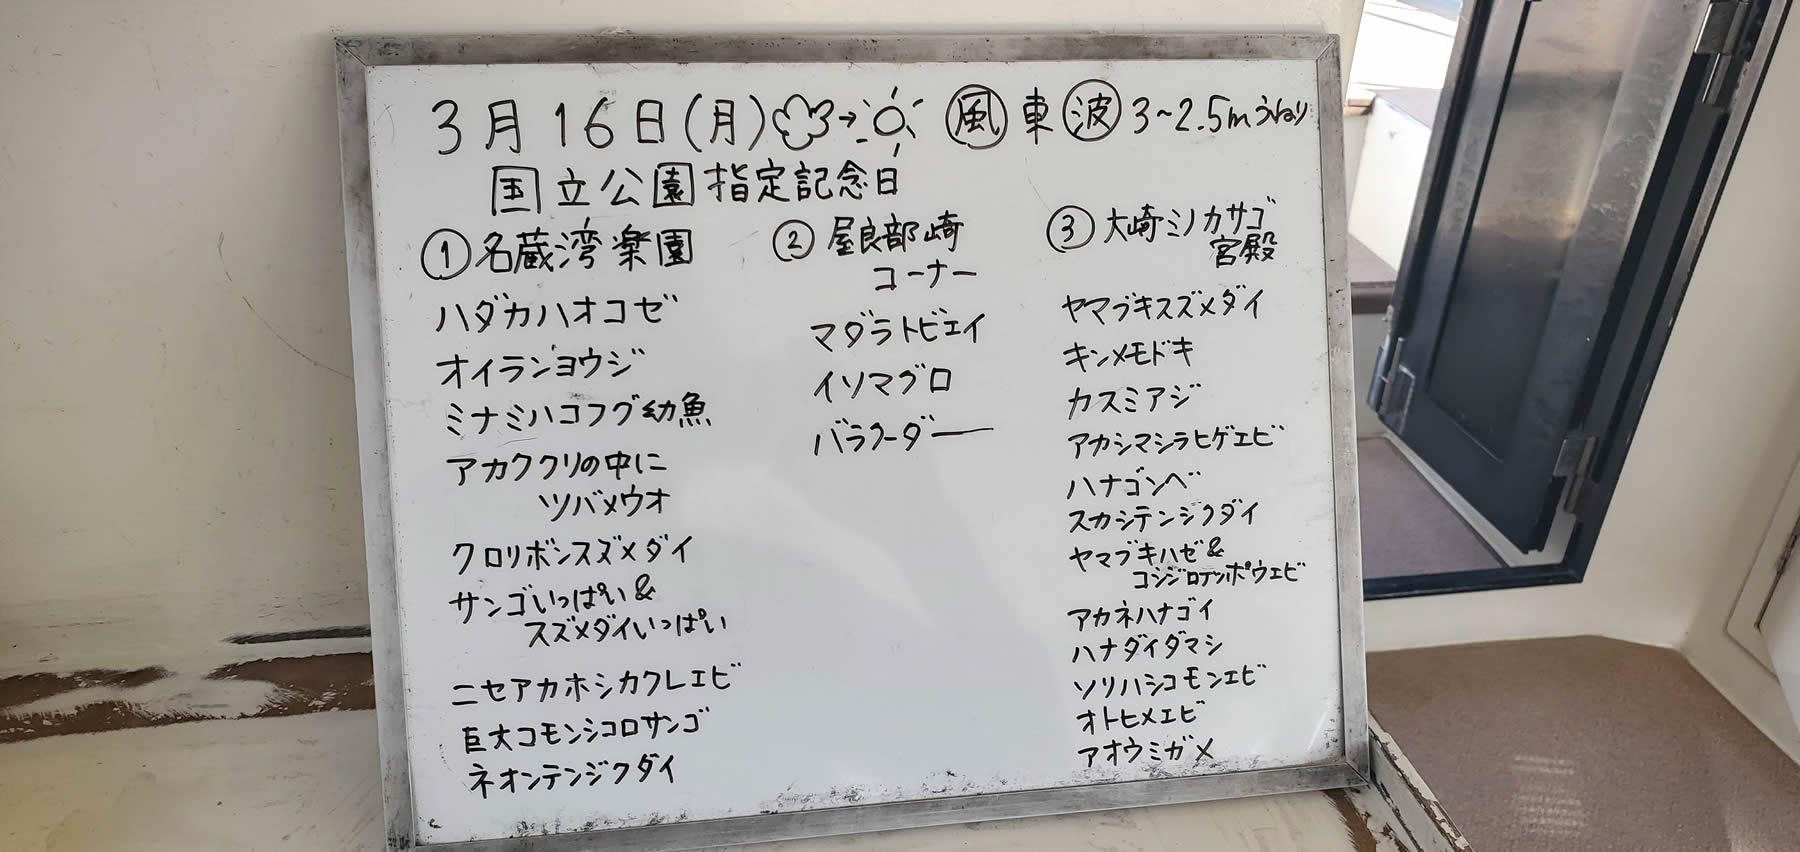 3月16日(月)→ 風 東 波 3~2.5m うねり
国立公園指定記念日
① 名蔵湾楽園
ハダカハオコゼ
オイランヨウジ
ミナミハコフグ幼魚
アカククリの中に
ツバメウオ
クロリボンスズメダイ
サンゴいっぱい&
スズメダイいっぱい
ニセアカホシカクレエビ
巨大コモンシコロサンゴ
ネオンテンジクダイ
② 屋良部崎
コーナー
マダラトビエイ
イソマグロ
バラクーダー
③ 大崎ミノカサゴ
宮殿
ヤマブキスズメダイ
キンメモドキ
カスミアジ
アカシマシラヒゲエビ
ハナゴンベ
スカシテンジクダイ
ヤマブキハゼ&
コシジロテッポウエビ
アカネハナゴイ
ハナダイダマシ
ソリハシコモンエビ
オトヒメエビ
アオウミガメ